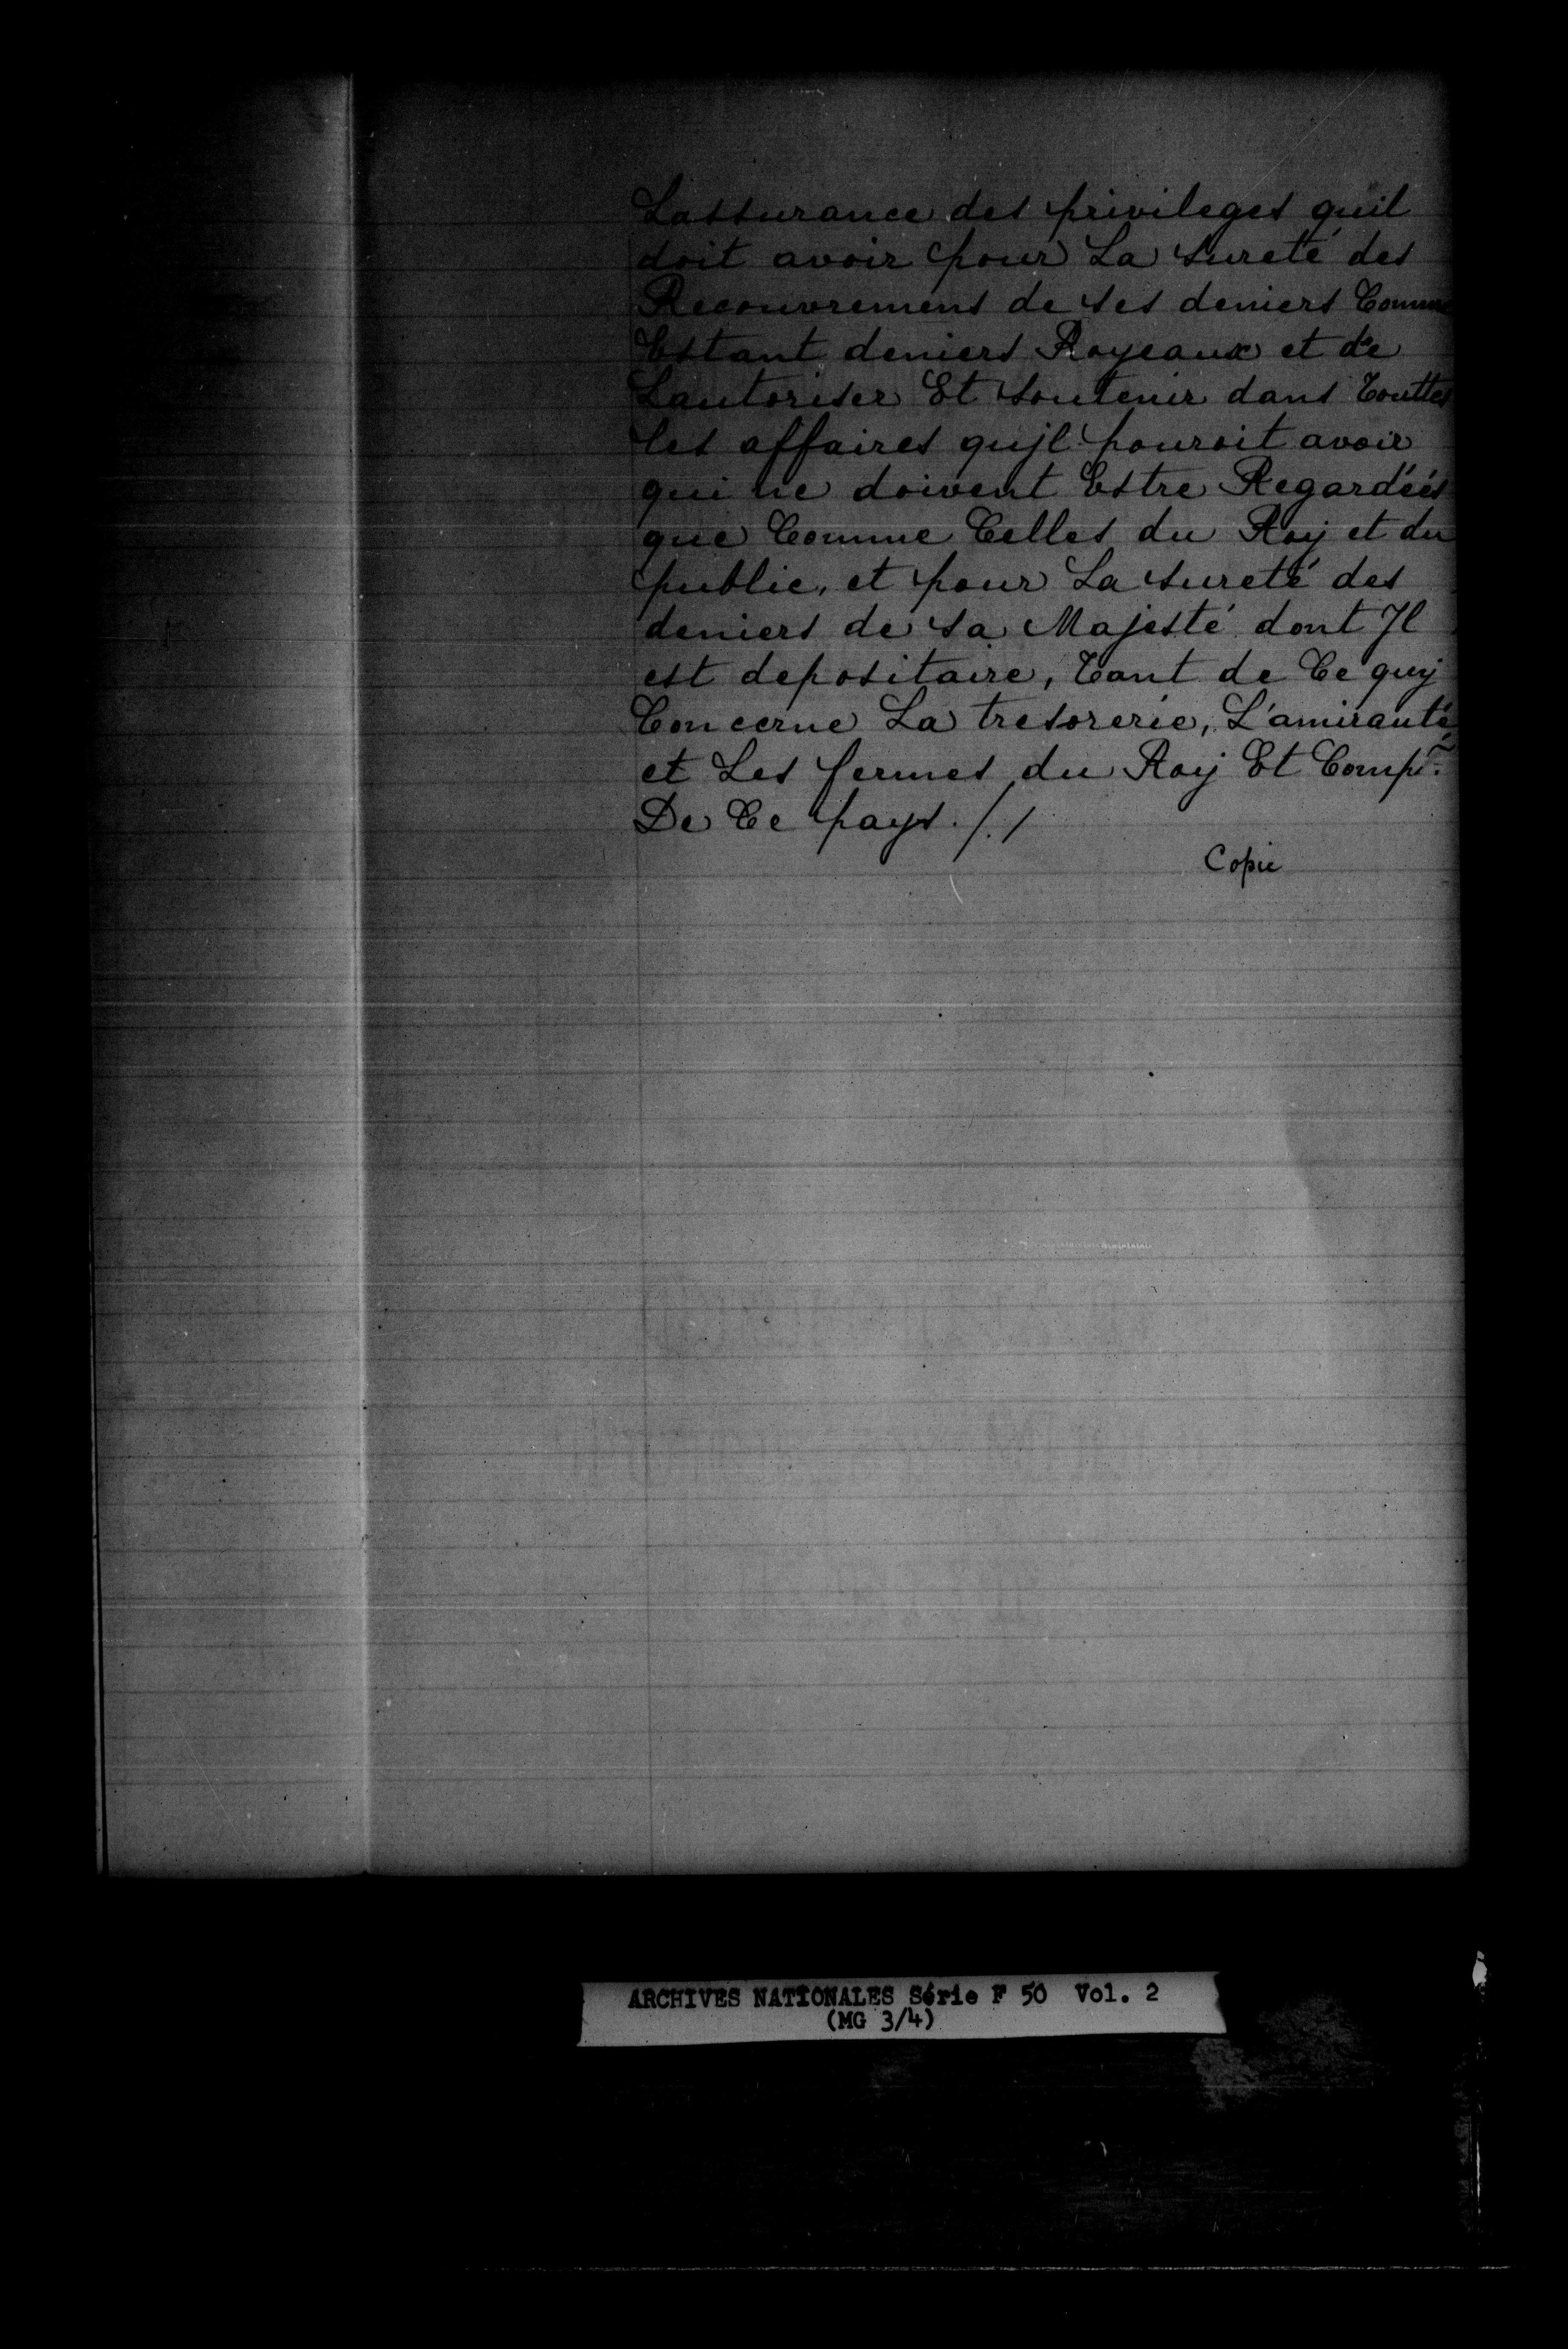 Lassurance des privileges quil
doit avoir pour La sureté des
Recouvremens de ses deniers Comme
Estant deniers Royeaux et de
Lautoriser Et soutenir dans Touttes
les affaires qujl pouroit avoir
qui ne doivent Estre Regardéés
que Comme Celles du Roy et du
public, et pour La sureté des
deniers de sa Majesté dont Jl
est depositaire, Tant de Ce quy
Concerne La tresorerie, L'amirauté
et Les fermes du Roy Et Comp.
De Ce pays ./. /
Copie
ARCHIVES NATIONALES Série F 50 Vol. 2
(MG 3/4)